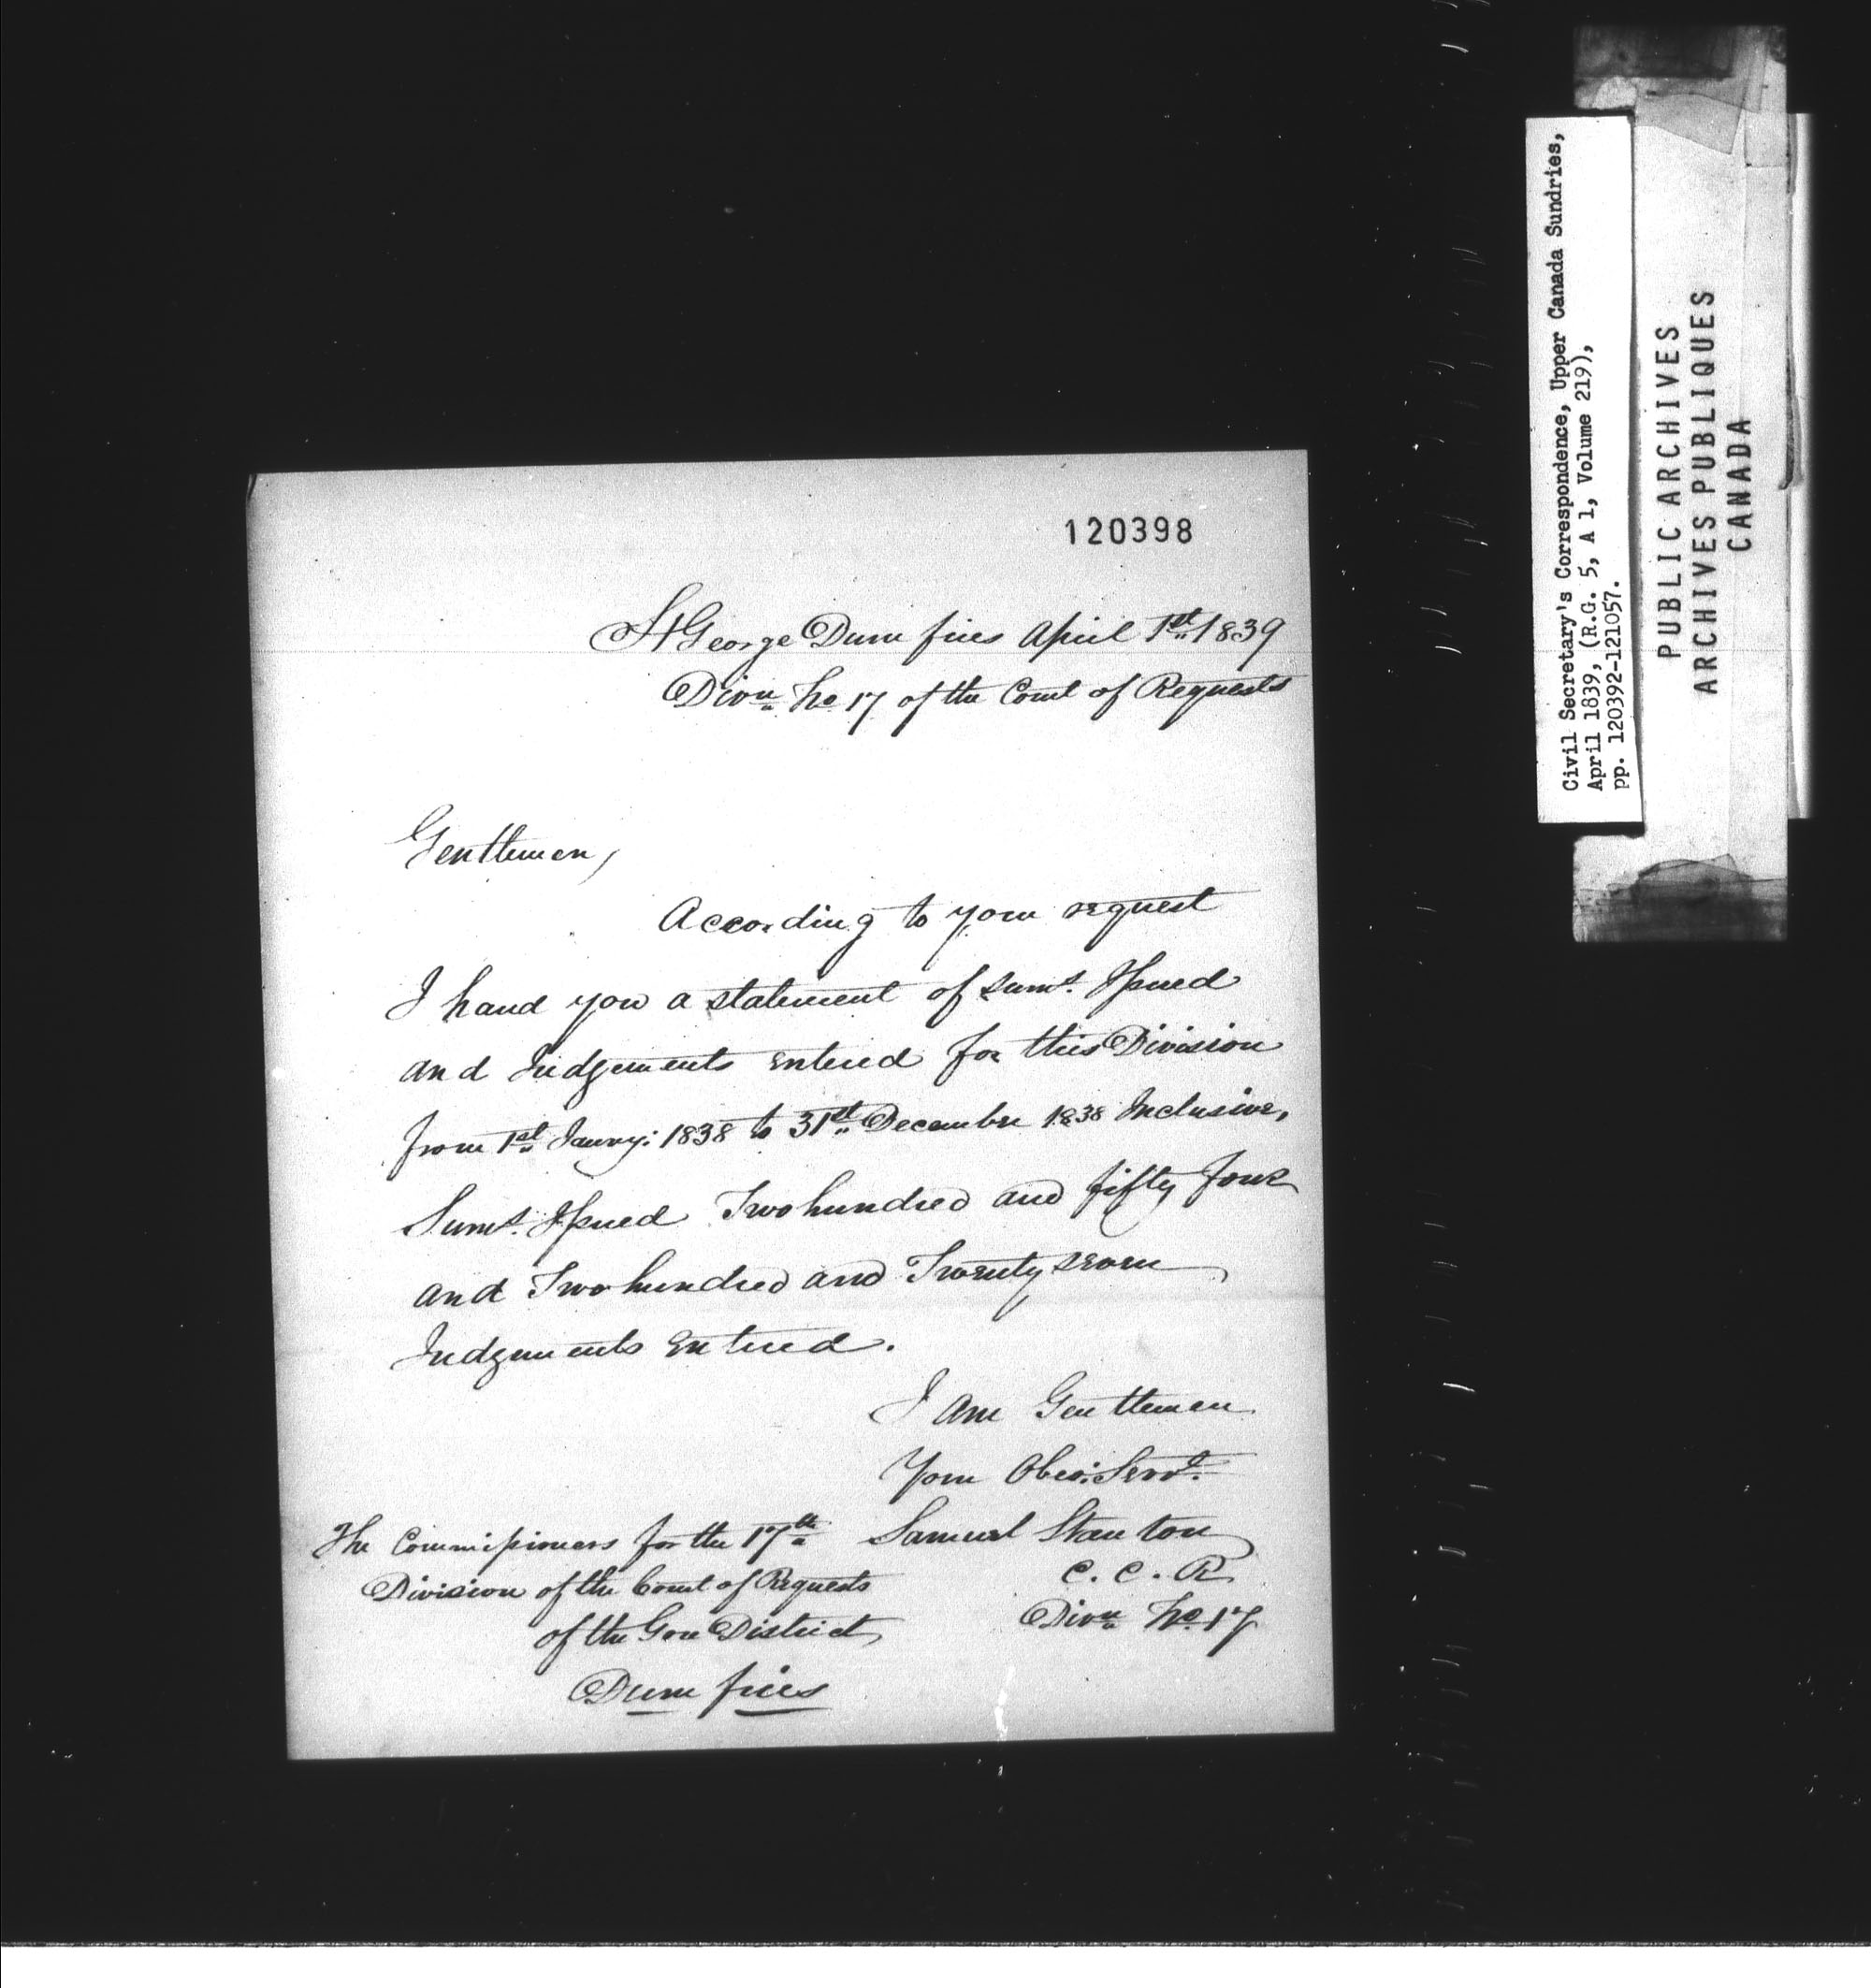 120398
St George Dumfries April 1st 1839
Divn. No 17 of the Court of Requests
Gentlemen,
According to your request
I hand you a statement of sums. Issued
and Judgements entered for this Division
from 1st Janry: 1838 to 31st December 1838 Inclusive,
Sums. Issued Two hundred and fifty four
and Two hundred and Twenty seven
Judgements Entered.
I am Gentlemen
Your Obed. Servt.
Samuel Stanton
C. C. R
Divn No 17
The Commissioners for the 17th
Division of the Court of Requests
of the Gore District,
Dumfries
Civil Secretary's Correspondence, Upper Canada Sundries,
April 1839, (R.G. 5, A 1, Volume 219),
pp. 120392-121057.
PUBLIC ARCHIVES
ARCHIVES PUBLIQUES
CANADA